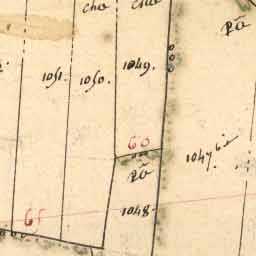 cha cha
pã
1051. 1050. 1049.
60
1047 bis
pã
1048
65